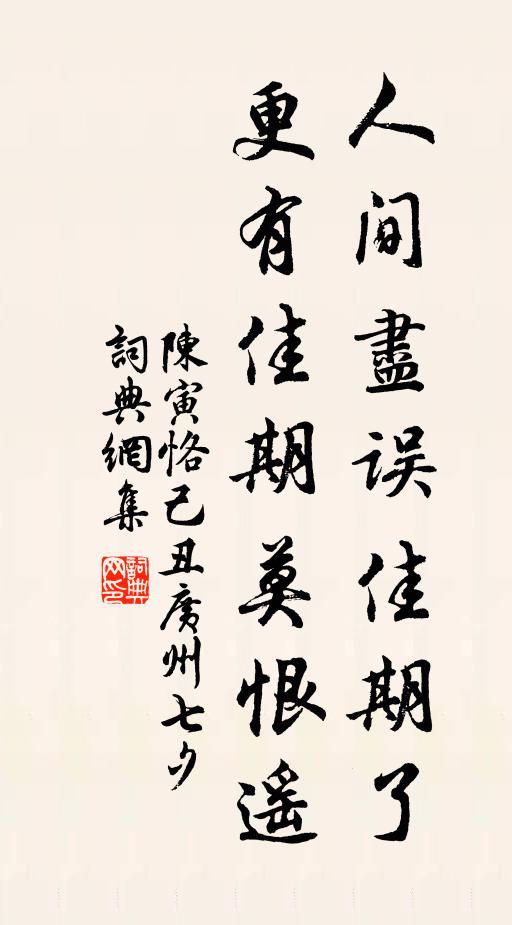 人間盡误佳期了
更有佳期莫恨遥
陳寅恪己丑廣州七夕
詞典網集
詞典
网印